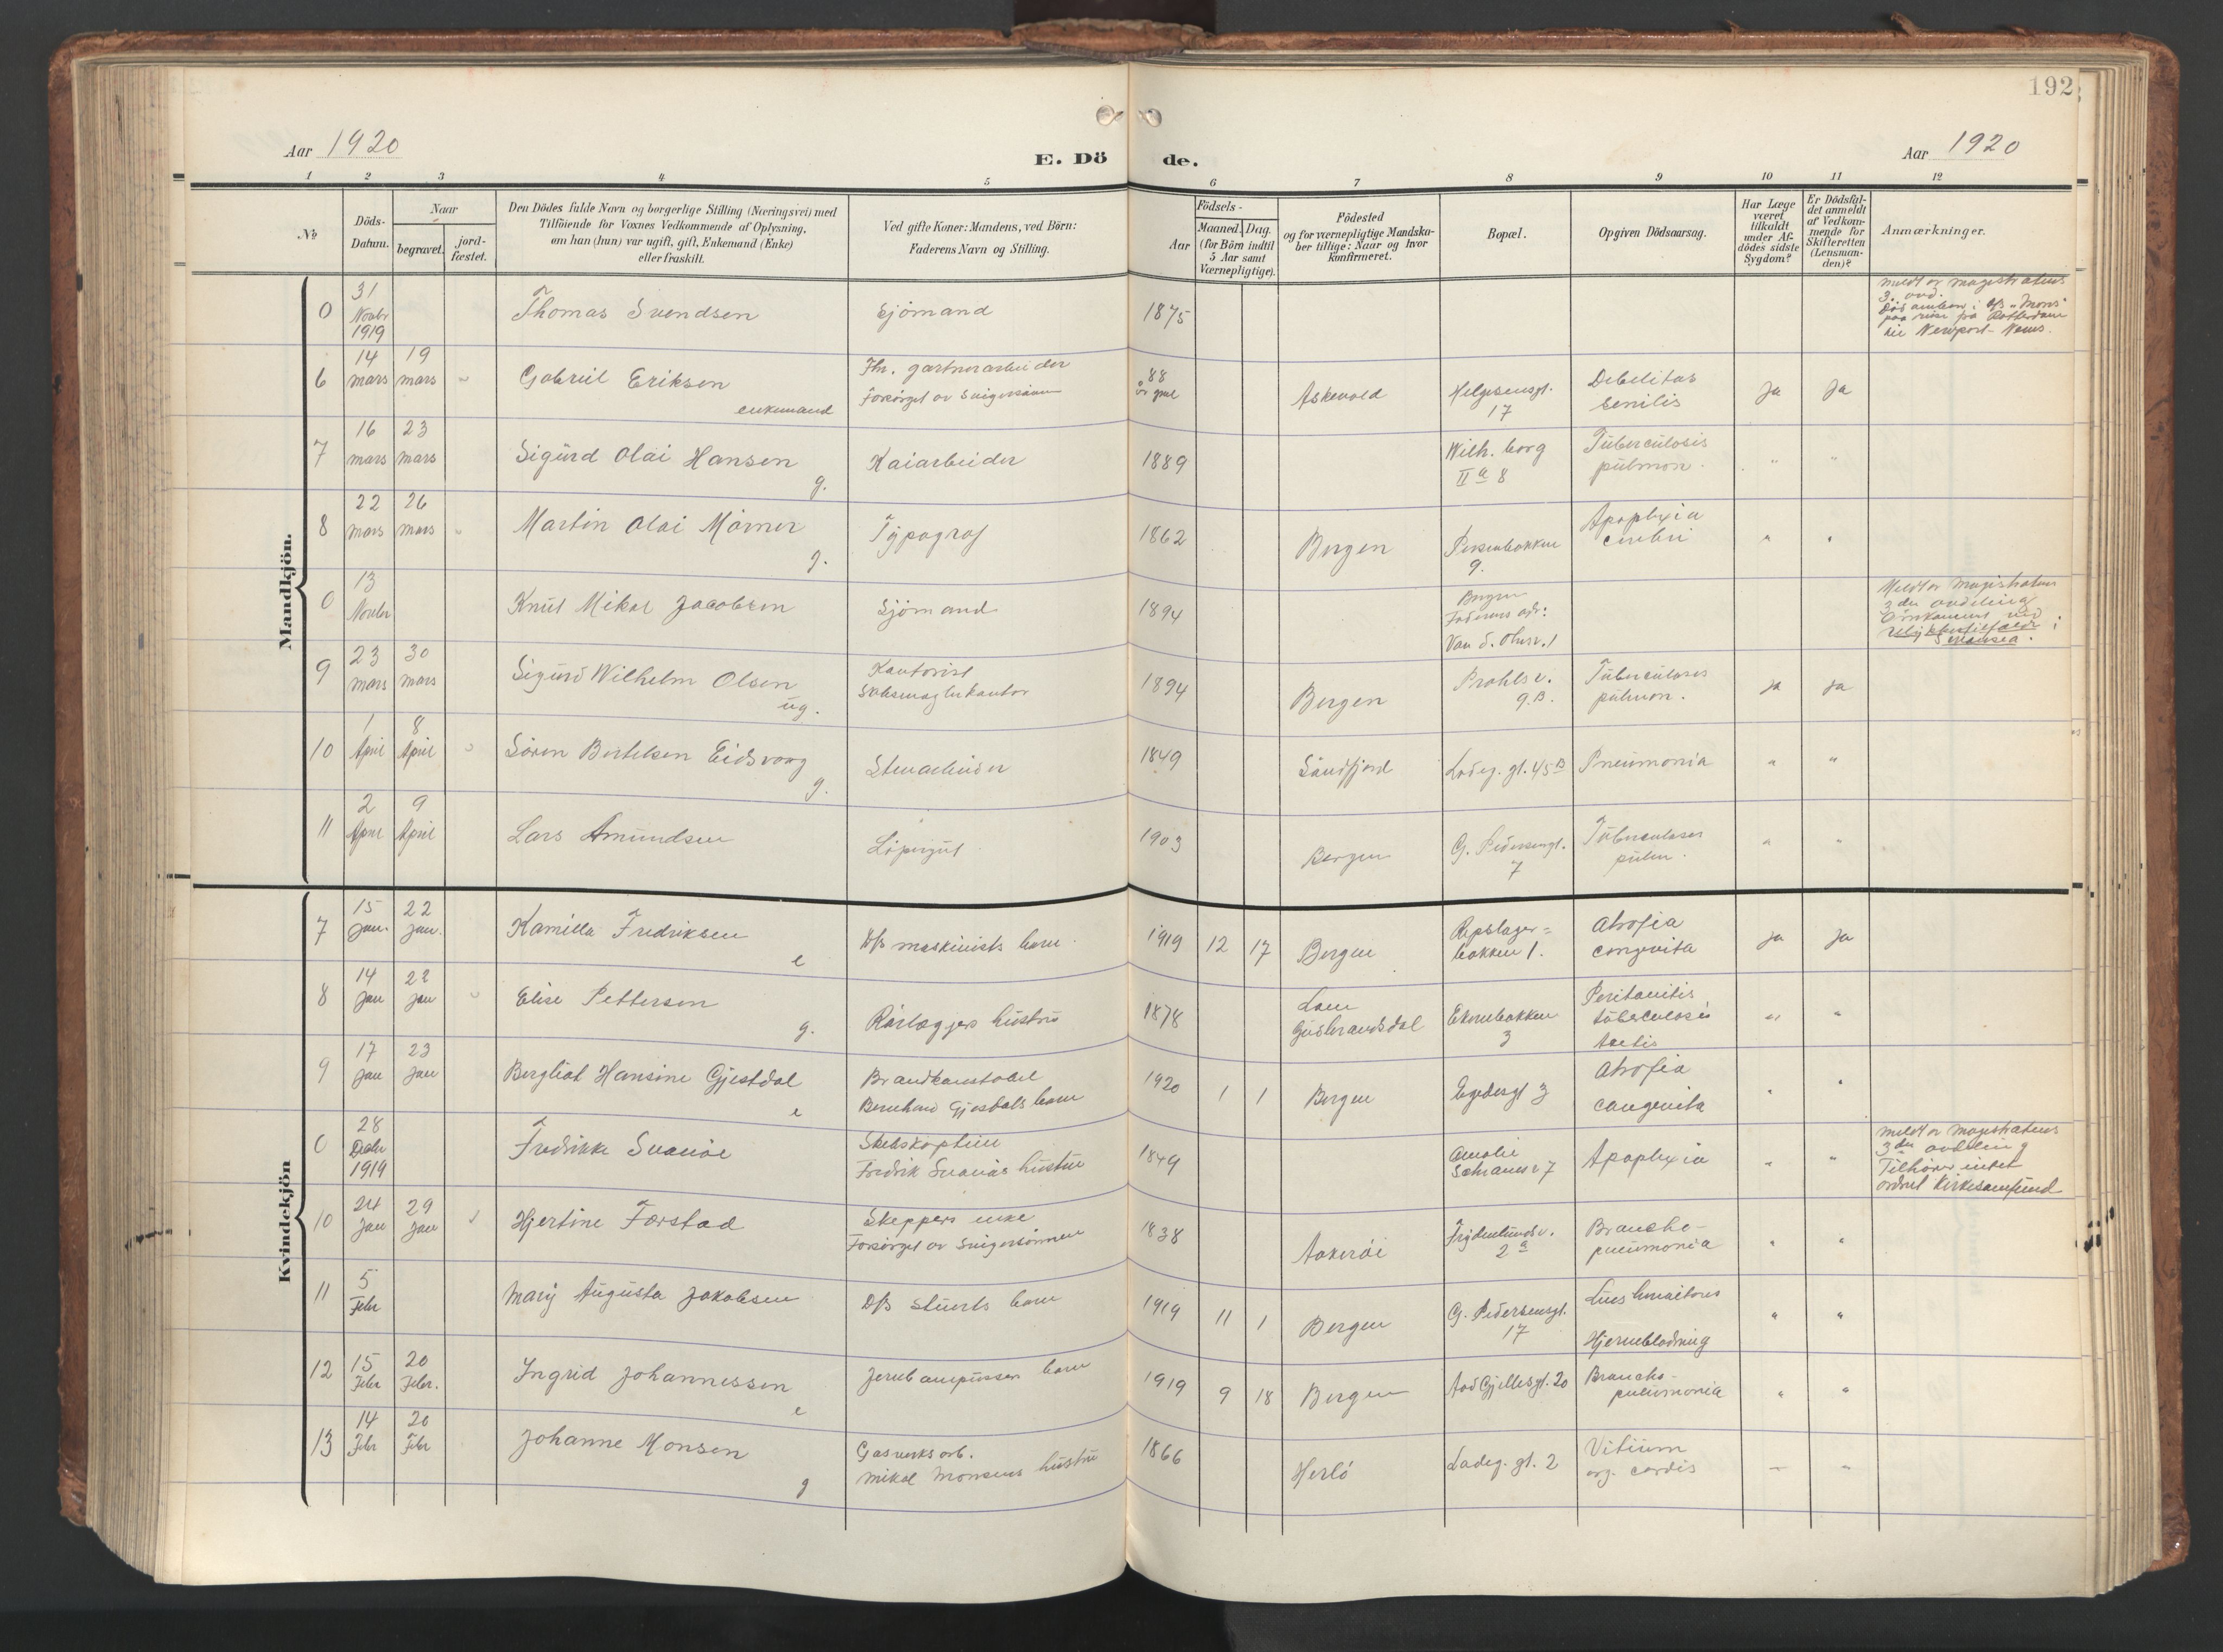 192
Aar 1920
E. Dö
de.
Aar 1920
1 2 3 4 5 6 7 8 9 10 11 12
No
Döds-
Datum.
Naar
begravet.
jord-
fæstet.
Den Dödes fulde Navn og borgerlige Stilling (Næringsvei) med
Tilföiende for Voxnes Vedkommende af Oplysning,
om han (hun) var ugift, gift, Enkemand (Enke)
eller fraskilt.
Ved gifte Koner: Mandens, ved Börn:
Faderens Navn og Stilling.
Födsels-
Aar
Maaned. Dag.
(for Börn indtil
5 Aar samt
Værnepligtige).
Födested
og for værnepligtige Mandska-
ber tillige: Naar og hvor
konfirmeret.
Bopæl.
Opgiven Dödsaarsag.
Har Læge
været
tilkaldt
under Af-
dödes sidste
Sygdom?
Er Dödsfal-
det anmeldt
af Vedkom-
mende for
Skifteretten
(Lensman-
den)?
Anmærkninger.
Mandkjön.
0 31 Novbr 1919 Thomas Svendsen Sjömand 1875
meldt av magistratens
3. avd.
Död ombord i d/s "Mons"
paa reise fra Rotterdam
til Newport-News.
6 14 mars 19 mars Gabriel Eriksen
enkemand
Fhv. gartnerarbeider
Forsörget av Svigersönn
88
år gml
Askevold Helgesensgt.
17
Debilitas
senilis
Ja Ja
7 16 mars 23 mars Sigurd Olai Hansen
g.
Kaiarbeider 1889
Wilh. borg
II a 8
Tuberculosis
pulmon. " "
8 22 mars 26 mars Martin Olai Mörner
g.
Typograf 1862 Bergen
Persenbakken
9.
Apoplexia
cerebri " "
0 13 Novbr Knut Mikal Jacobsen Sjömand 1894
Bergen
Faderens adr:
Meldt av Magistratens
3die avdeling
Omkommet ved
ulykkestilfælde i
Swansea.
9 23 mars 30 mars Sigurd Wilhelm Olsen
ug.
Kontorist
Skibsmæglerkontor
1894 Bergen
Prahls v.
9.B.
Tuberculoses
pulmon.
ja ja
10 1 April 8 April Sören Bertelsen Eidsvaag
g.
Stenarbeider 1849 Söndfjord Ladeg. gt. 45 B Pneumonia " "
11 2 April 9 April Lars Amundsen Löpergut 1903 Bergen
G. Pedersensgt.
7
Tuberculoses
pulm. " "
Kvindekjön
7 15 Jan. 22 Jan. Kamilla Fredriksen
e
D/s maskinists barn. 1919 12 17 Bergen
Repslager=
bakken 1.
Atrofia
congenita
ja ja
8 14 Jan 22 Jan Elise Pettersen
g.
Rörlæggers hustru 1878
Lom
Gudbrandsdal
Ekrenbakken
3
Peritonitis
tuberculosis
" "
9 17 Jan 23 Jan Bergliot Hansine Gjestdal
e
Brandkonstabel
Bernhard Gjesdals barn
1920 1 1 Bergen Egedesgt 3
Atrofia
congenita " "
0 28 Debr 1919 Fredrikke Svanöe
Skibskaptein
Fredrik Svanöes hustru
1849
Amalie
Schrams v 7
Apoplexia " "
meldt av magistratens
3die avdeling
Tilhörer intet
ordnet Kirkesamfund
10 24 Jan 29 Jan Hjertine Farstad
Skeppers enke
Forsörget av Svigersönnen
1838 Aakeröi
Frydenlundsv.
2 a
Broncho-
pneumonia " "
11 5 Febr Mary Augusta Jakobsen D/s stuerts barn 1919 11 1 Bergen
G. Pedersensgt.
17
Hjerneblödning " "
12 15 Febr 20 Febr. Ingrid Johannessen
e
Jernbanepussers barn 1919 9 18 Bergen Aad Gjellesgt. 20
Broncho-
pneumonia " "
13 14 Febr 20 Febr Johanne Monsen
g
Gasverksarb.
Mikal Monsens hustru
1866 Herlö Ladeg. gt. 2
Vitium
org. cordis